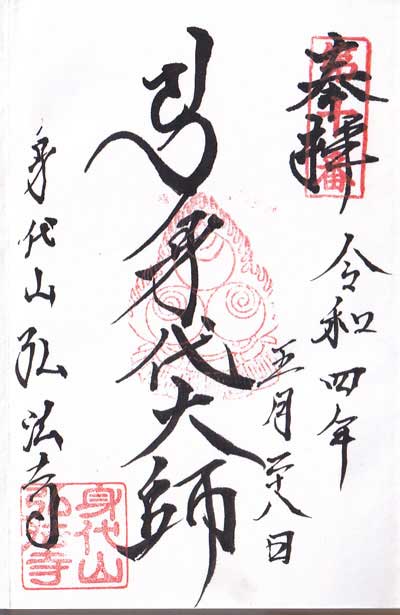 奉拝
令和四年
五月二十八日
身代大師
身代山弘法寺
身代山
弘法寺